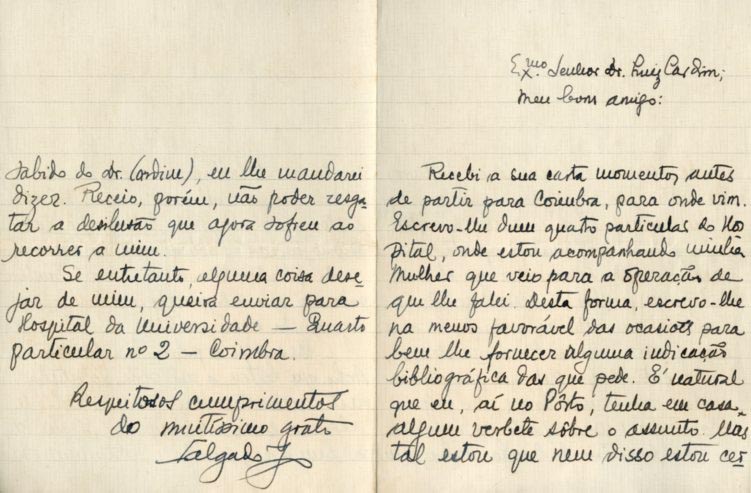 Exmo. Senhor Dr. Luiz Cardim;
Meu bom amigo:
Recebi a sua carta momentos antes
de partir para Coimbra, para onde vim.
Escrevo-lhe dum quarto particular do Hos
pital, onde estou acompanhando minha
Mulher que veio para a operação de
que lhe falei. Desta forma, escrevo-lhe
na menos favorável das ocasiões para
bem lhe fornecer alguma indicação
bibliográfica das que pede. É natural
que eu, aí no Pôrto, tenha em casa
algum verbete sôbre o assunto. Mas
tal estou que nem disso estou cer-
sabido do Dr. Cardim), eu lhe mandarei
dizer. Receio, porém, não poder resga-
tar a desilusão que agora sofreu ao
recorrer a mim.
Se entretanto, alguma coisa dese-
jar de mim, queira enviar para
Hospital da Universidade — Quarto
particular nº 2 — Coimbra.
Respeitosos cumprimentos
do muitíssimo grato
Salgado Jr